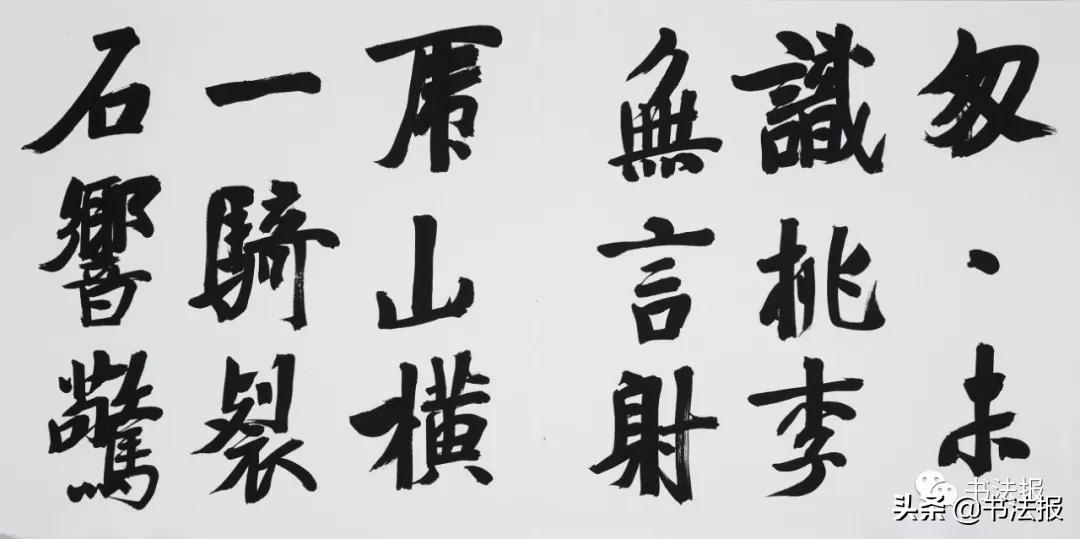 匆丶未
識桃李
無言射
虎山横
一騎裂
石響驚
书法报
头条 @书法报